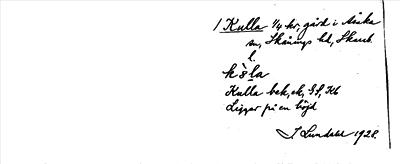 1 Kulla 1/4 kr, gård i Åsaka
sn, Skånings hd, Skarab.
l.
Kulla bek, ek, GS, Kb
Ligger på en höjd
J Lundahl 1928.